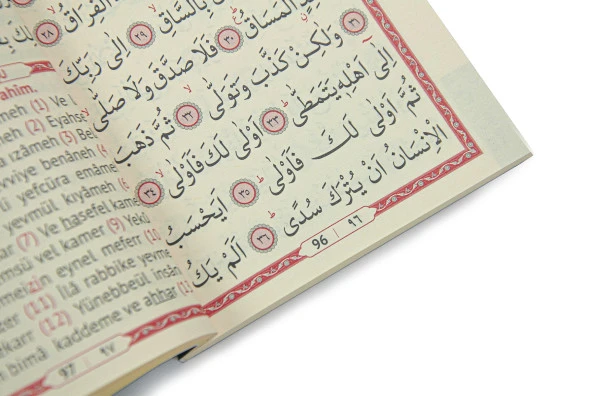 الْفِرَاقُ ٢٨
بِالسَّاقِ ٢٩ اِلٰى رَبِّكَ
الْمَسَاقُ ٣٠ فَلَا صَدَّقَ وَلَا صَلّٰى
٣١ وَلٰكِنْ كَذَّبَ وَتَوَلّٰى ٣٢ ثُمَّ ذَهَبَ
اِلٰٓى اَهْلِه۪ يَتَمَطّٰى ٣٣ اَوْلٰى لَكَ فَاَوْلٰى ٣٤
ثُمَّ اَوْلٰى لَكَ فَاَوْلٰى ٣٥ اَيَحْسَبُ
الْاِنْسَانُ اَنْ يُتْرَكَ سُدًى ٣٦ اَلَمْ يَكُ
96 | ٩٦
ahim.
meh (1) Ve l
meh (2) Eyahse
izâmeh (3) Bel
viye benâneh (4
yefcüra emâme
yevmül kıyâmeh (6
(7) Ve hasefel kame
msü vel kamer (9) Yekû
eynel meferr (10
(11) İlâ rabbike yevme
(12) Yünebbeül insân
bimâ kaddeme ve ahhar (1
97 | ٩٧